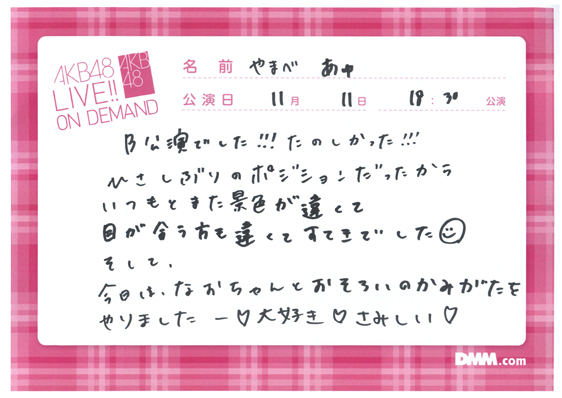 AKB48
LIVE!!
ON DEMAND
AKB
48
名 前 やまべ あゆ
公演日 11月 11日 18:30 公演
B公演でした!!! たのしかった!!!
ひさしぶりのポジションだったから
いつもとまた景色が違くて
目が合う方も違くてすてきでした☺
そして、
今日は、なおちゃんとおそろいのかみがたを
やりましたー♡大好き♡さみしい♡
DMM.com